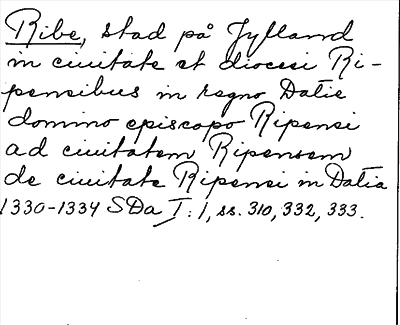 Ribe, stad på Jylland
in ciuitate et diocesi Ri-
pensibus in regno Datie
domino episcopo Ripensi
ad ciuitatem Ripensem
de ciuitate Ripensi in Datia
1330-1334 SDa I:1, ss. 310, 332, 333.